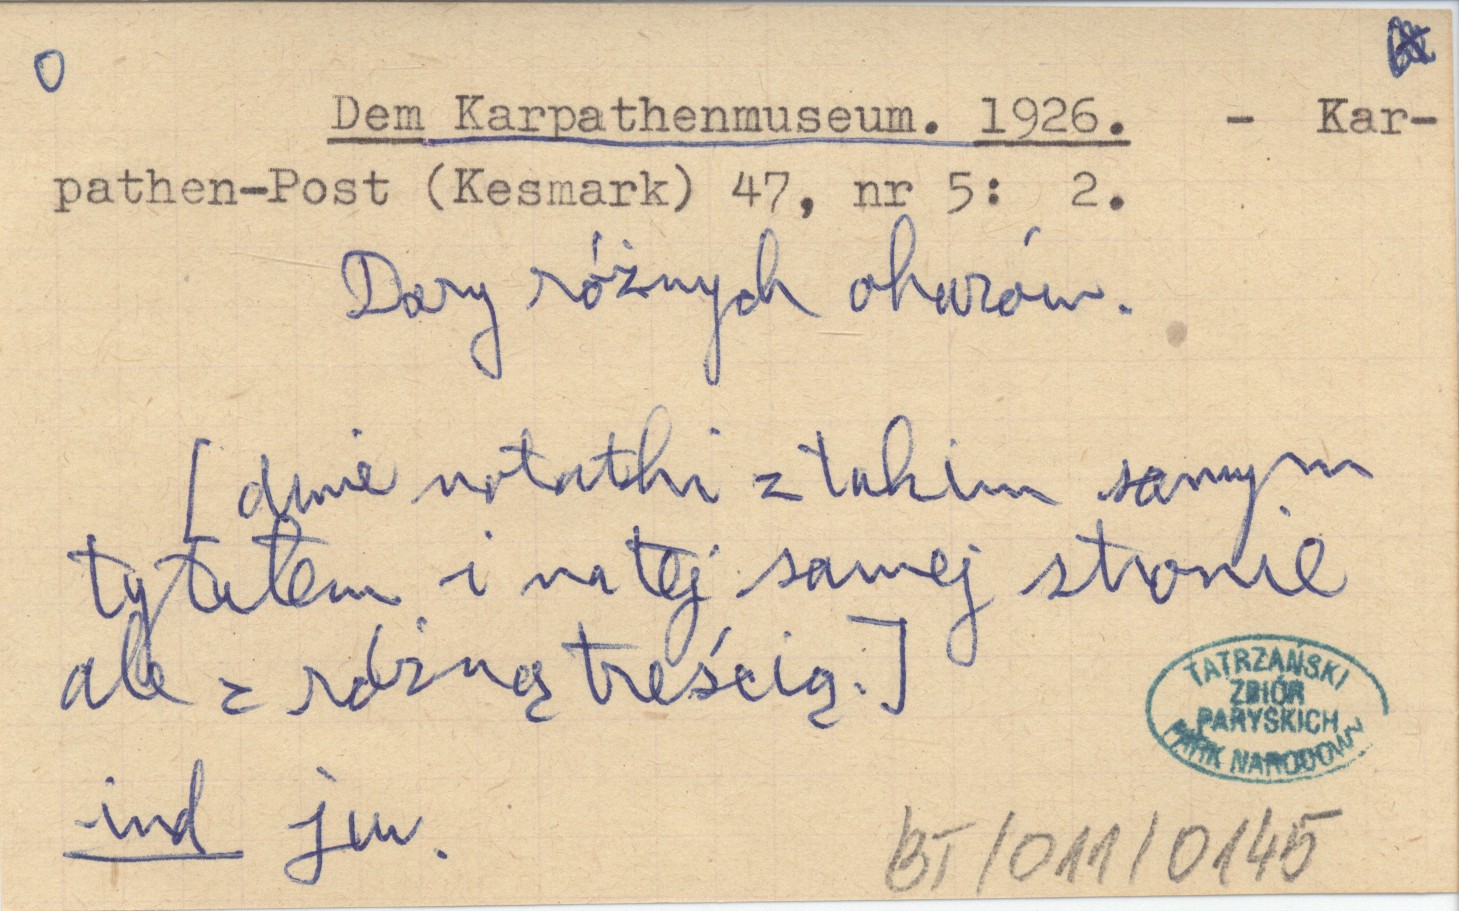 O
Dem Karpathenmuseum. 1926. - Kar-
pathen-Post (Kesmark) 47, nr 5: 2.
Dary różnych okazów.
[dwie notatki z takim samym
tytułem i na tej samej stronie
ale z różną treścią.]
TATRZAŃSKI
ZBIÓR
PARYSKICH
PARK NARODOWY
ind jw.
BT/011/0145